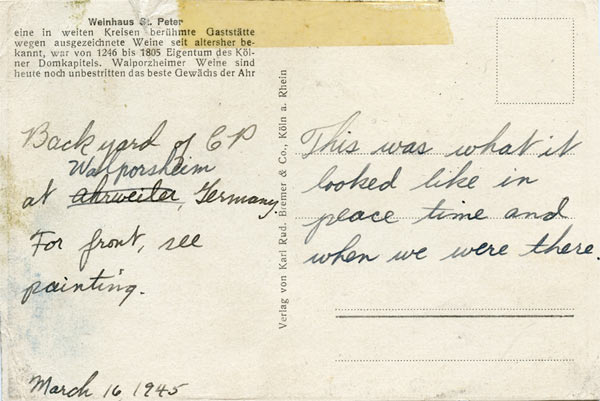 Weinhaus St. Peter
eine in weiten Kreisen berühmte Gaststätte
wegen ausgezeichnete Weine seit altersher be-
kannt, war von 1246 bis 1805 Eigentum des Köl-
ner Domkapitels. Walporzheimer Weine sind
heute noch unbestritten das beste Gewächs der Ahr
Backyard of CP
Walporsheim
at Ahrweiler, Germany.
For front, see
painting.
March 16, 1945
Verlag von Karl Rud. Bremer & Co., Köln a. Rhein
This was what it
looked like in
peace time and
when we were there.